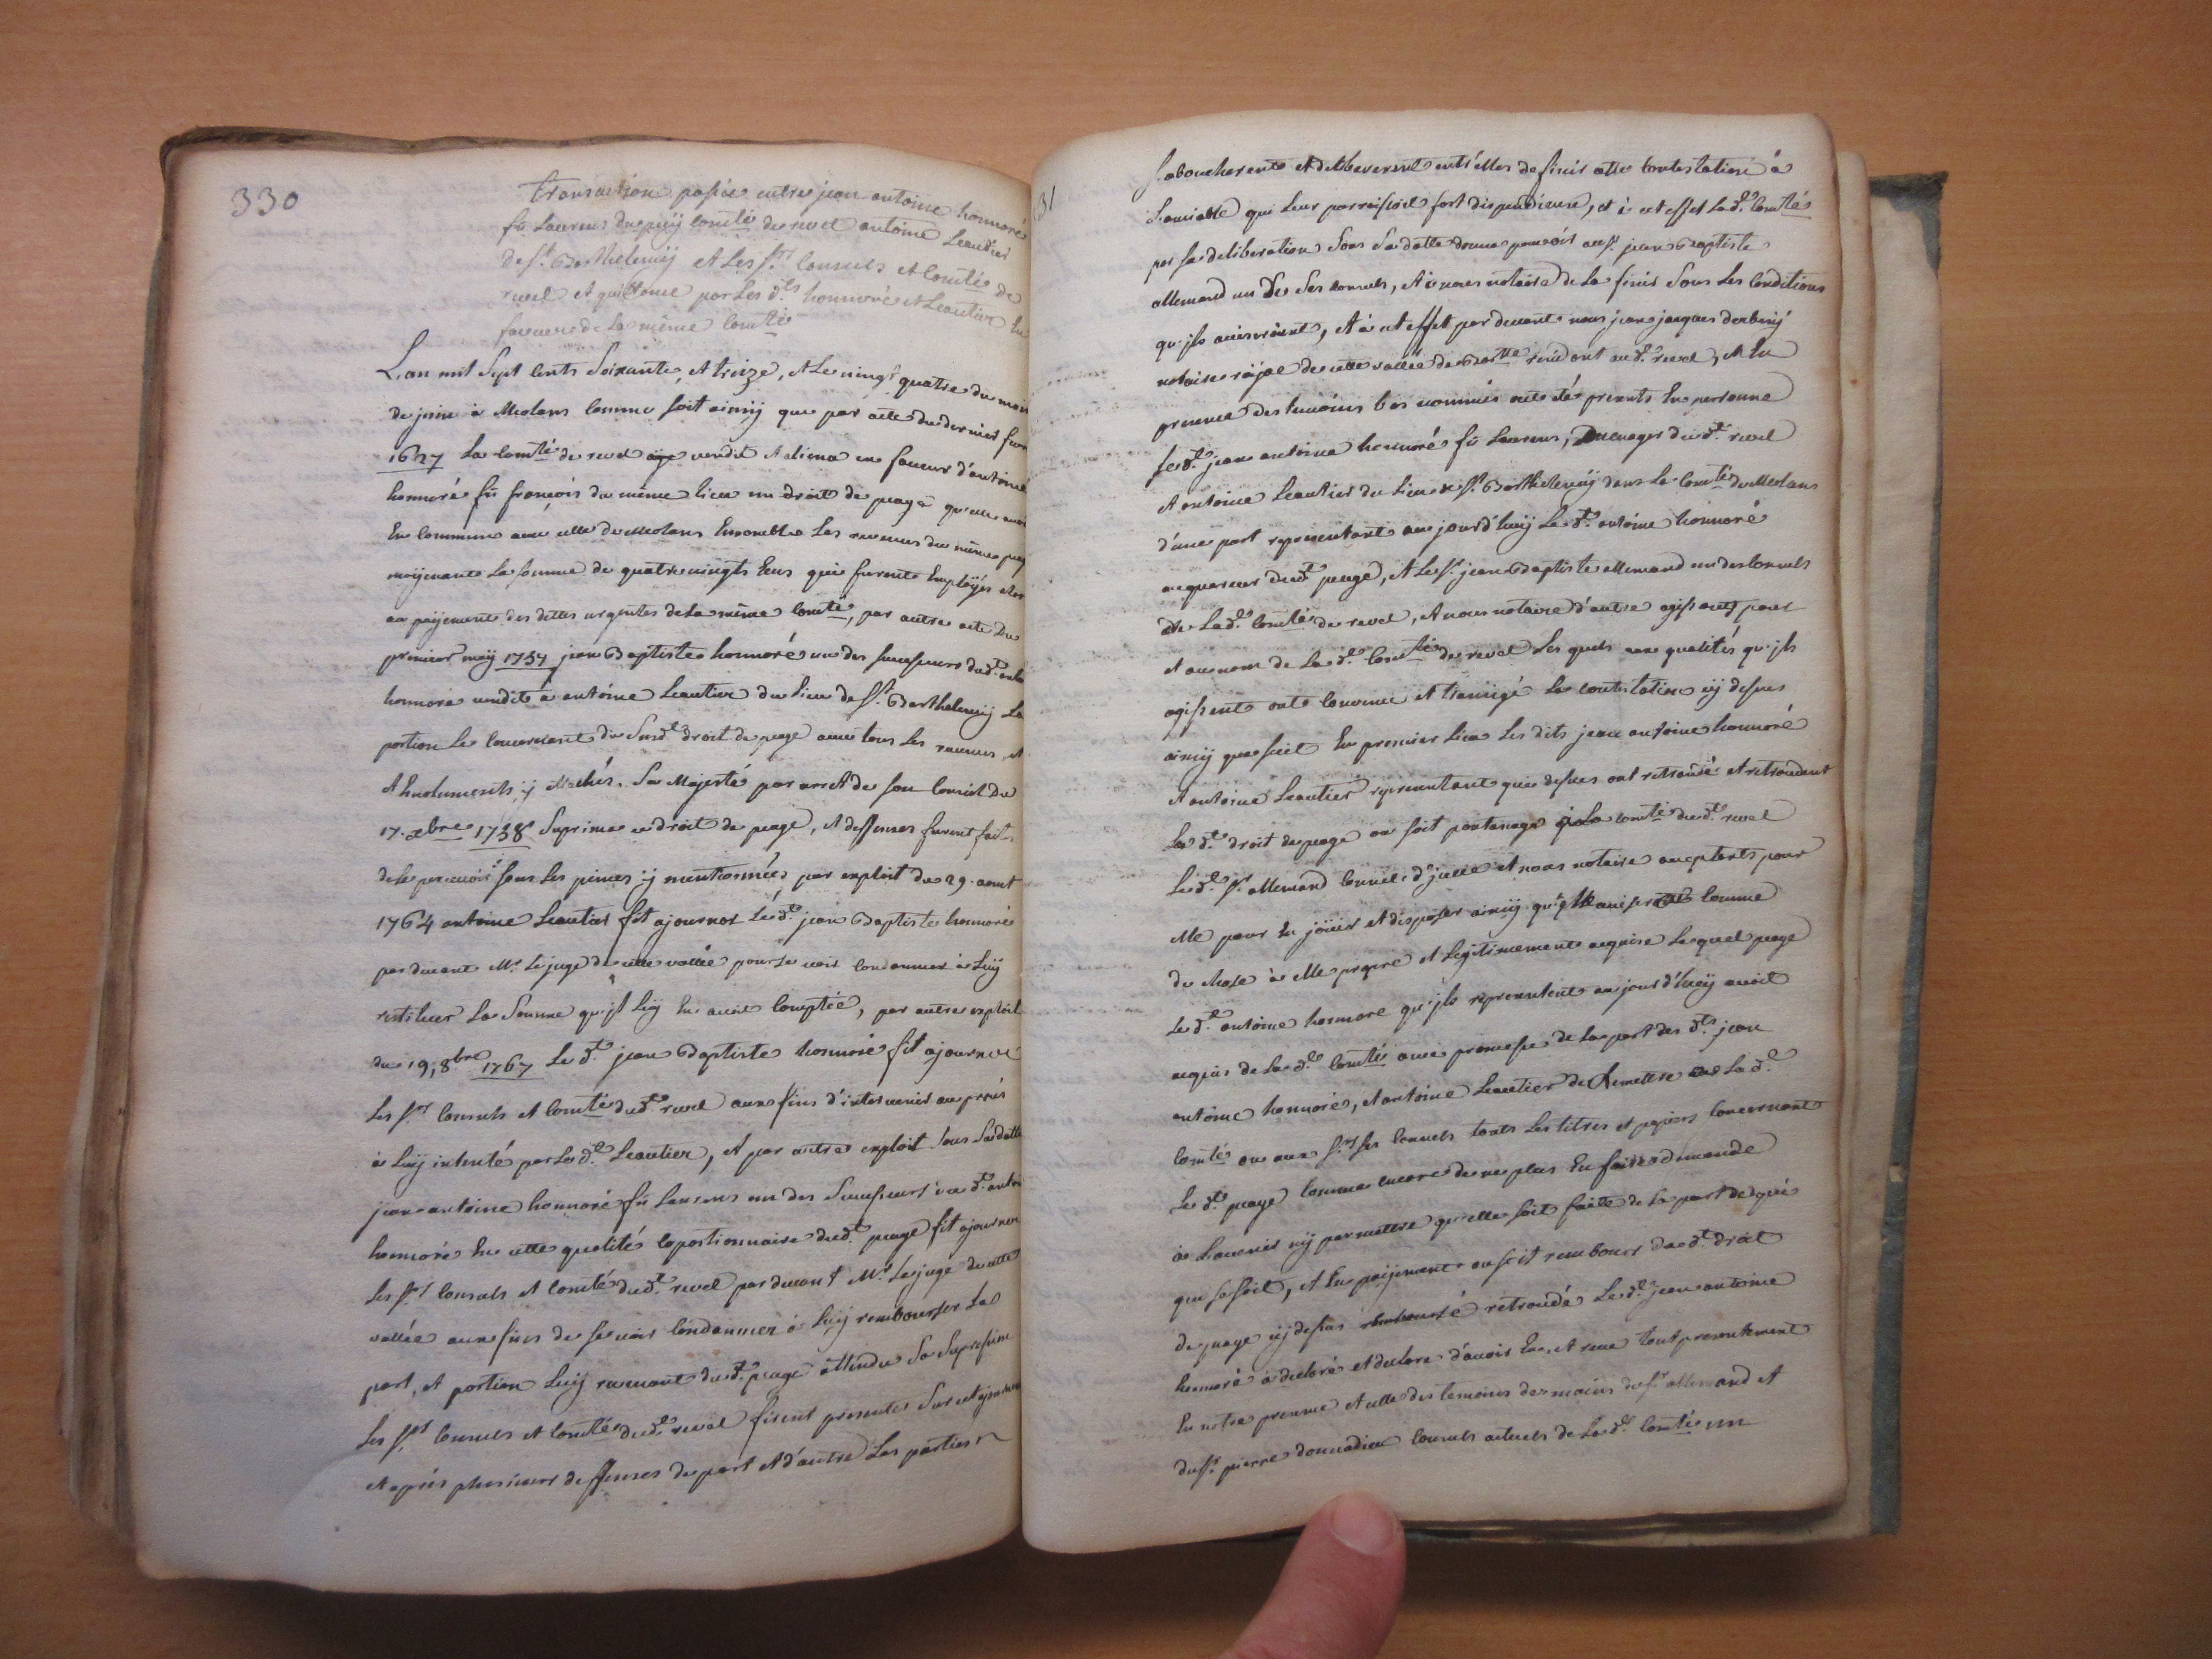 330
Transaction passée entre jean antoine honnoré
fû Laurens du puÿ comté de revel antoine Leautier
de st. Barthelemÿ et Les srs. consuls et comté de
revel et quittance par Les dts. honnoré et Leautier En
faveur de La même comté
L'an mil Sept cents Soixante et treize, et Le vingt quatre du mois
de juin à Meolans comme soit ainsÿ que par acte du dernier
1627 La comté de revel vendit et aliena en faveur d'antoine
honnoré fû françois du même lieu un droit de peage qu'elle avoit
En commun avec celle de Meolans Ensemble Les revenus du même
moÿenant La somme de quatre vingts Ecus qui furent Emploÿés
au paÿement des dettes urgentes de La même comté, par autre acte Du
premier maÿ 1757 jean Baptiste honnoré un des successeurs dud. antoine
honnoré vendit à antoine Leautier du Lieu de St. Barthelemÿ La
portion Le concernant du Susdt. droit de peage avec tous Les revenus et
et Emoluments ÿ attachés. Sa Majesté par arret de son conseil Du
17. xbre 1738 Suprima ce droit de peage, et deffenses furent faites
de Le percevoir sous Les peines ÿ mentionnées, par exploit du 29. aout
1764 antoine Leautier fit ajourner Ledt. jean Baptiste honnoré
par devant Mr. Le juge de cette vallée pour Se voir condamner à Luÿ
restituer La Somme qu'il Luÿ En avoit comptée, par autre exploit
du 19, 8bre 1767 Le dt. jean Baptiste honnoré fit ajourner
Les srs. consuls et comté dudt. revel aux fins d'intervenir au procés
à Luÿ intenté par Le dt. Leautier, et par autre exploit Sous Sa datte
jean antoine honnoré fû Laurens un des Successeurs du dt. antoine
honnoré En cette qualité coportionnaire dudt. peage fit ajourner
Les srs. consuls et comté dudt. revel par devant Mr. Le juge de cette
vallée aux fins de se voir Condamner à Luÿ rembourser La
part, et portion Luÿ revenant dudt. peage attendu Sa Supression
Les srs. consuls et comté dudt. revel firent presenter Sur cet ajournement
et après plusieurs deffenses de part et d'autre Les parties
31
S'aboucherent et delibererent entr'elles de finir cette contestation à
L'amiable qui Leur paroissoit fort dispendieuse, et à cet effet Lad. comté
par sa deliberation Sous Sa datte donna pouvoir au sr. jean Baptiste
allemand un De Ses consuls, et à nous notaire de La finir Sous Les conditions
qu'ils aviseroient, et à cet effet par devant nous jean jacques derbesÿ
notaire roÿal de cette vallée de Barlle. residant au d. revel, et En
presence des temoins bas nommés ont été presents En personne
Le dt. jean antoine honnoré fû Laurens, menager dudt. revel
et antoine Leautier du Lieu de St. Barthelemÿ dans La comté de Meolans
d'une part representant aujourd'huÿ Le dt. antoine honnoré
acquereur dudt. peage, et Le sr. jean Baptiste allemand un des consuls
de Lad. comté de revel, et nous notaire d'autre agissant pour
et au nom de Lad. comté de revel Les quels aux qualités qu'ils
agissent ont convenu et transigé La contestation cÿ dessus
ainsÿ que suit En premier Lieu Les dits jean antoine honnoré
et antoine Leautier representant que dessus ont retroudé et retroudent
Le dt. droit de peage ou soit pontonage à La comté dudt. revel
Le dt. sr. allemand consul d'jcelle et nous notaire acceptants pour
elle pour En jöuir et disposer ainsÿ qu'elle avisera comme
de chose à elle propre et Legitimement acquise Lequel peage
Le dt. antoine honnoré qu'ils representent aujourd'huÿ avoit
acquis de Lad. comté avec promesse de La part des dts. jean
antoine honnoré, et antoine Leautier de Remettre à Lad.
comté ou aux srs. ses consuls touts Les titres et papiers concernant
Le dt. peage comme encore de ne plus En faire demande
à L'avenir nÿ permettre qu'elle soit faitte de La part de qui
que se soit, et En paÿement ou soit rembours du dt. droit
de peage cÿ dessus retroudé Le dt. jean antoine
honnoré à declaré et declare d'avoir Eu, et receu tout presentement
En notre presence et celle des temoins des mains du sr. allemand et
du sr. pierre donnadieu consuls actuels de La d. comté